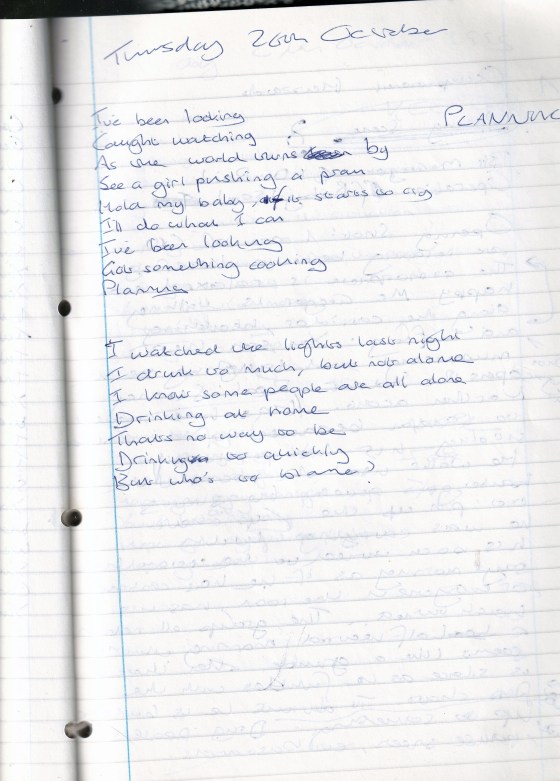 Thursday 20th October
PLANNING
I've been looking
Caught watching
As the world turns by
See a girl pushing a pram
Hold my baby, if it starts to cry
I'll do what I can
I've been looking
Got something cooking
Planning
I watched the lights last night
I drunk to much, but not alone
I know some people are all alone
Drinking at home
Thats no way to be
Drinking to quickly
But who's to blame?